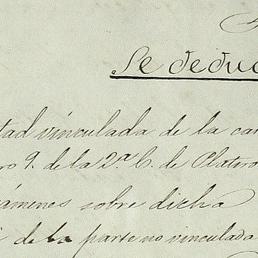 Se deduc
tad vinculada de la ca
ro 9. de la 2.ª C. de Platero
ámenes sobre dicha
de la parte no vinculada